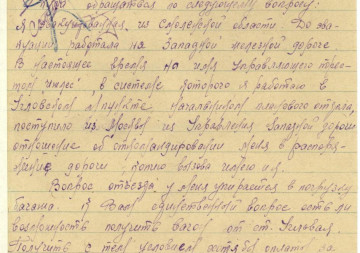 обращаться по следующему вопросу:
Я эвакуированная из Смоленской области. До эва-
куации работала на Западной железной дороге.
В настоящее время на имя Управляющего трес-
том, в системе которого я работаю в
Угловском пункте начальником планового отдела,
поступило из Москвы из Управления Западной дороги
отношение об откомандировании меня в распоря-
жение дороги,
Вопрос отъезда у меня упирается в погрузку
багажа. К Вам единственный вопрос есть ли
возможность получить вагон от ст. Угловая.
Получить с тем условием оплаты за